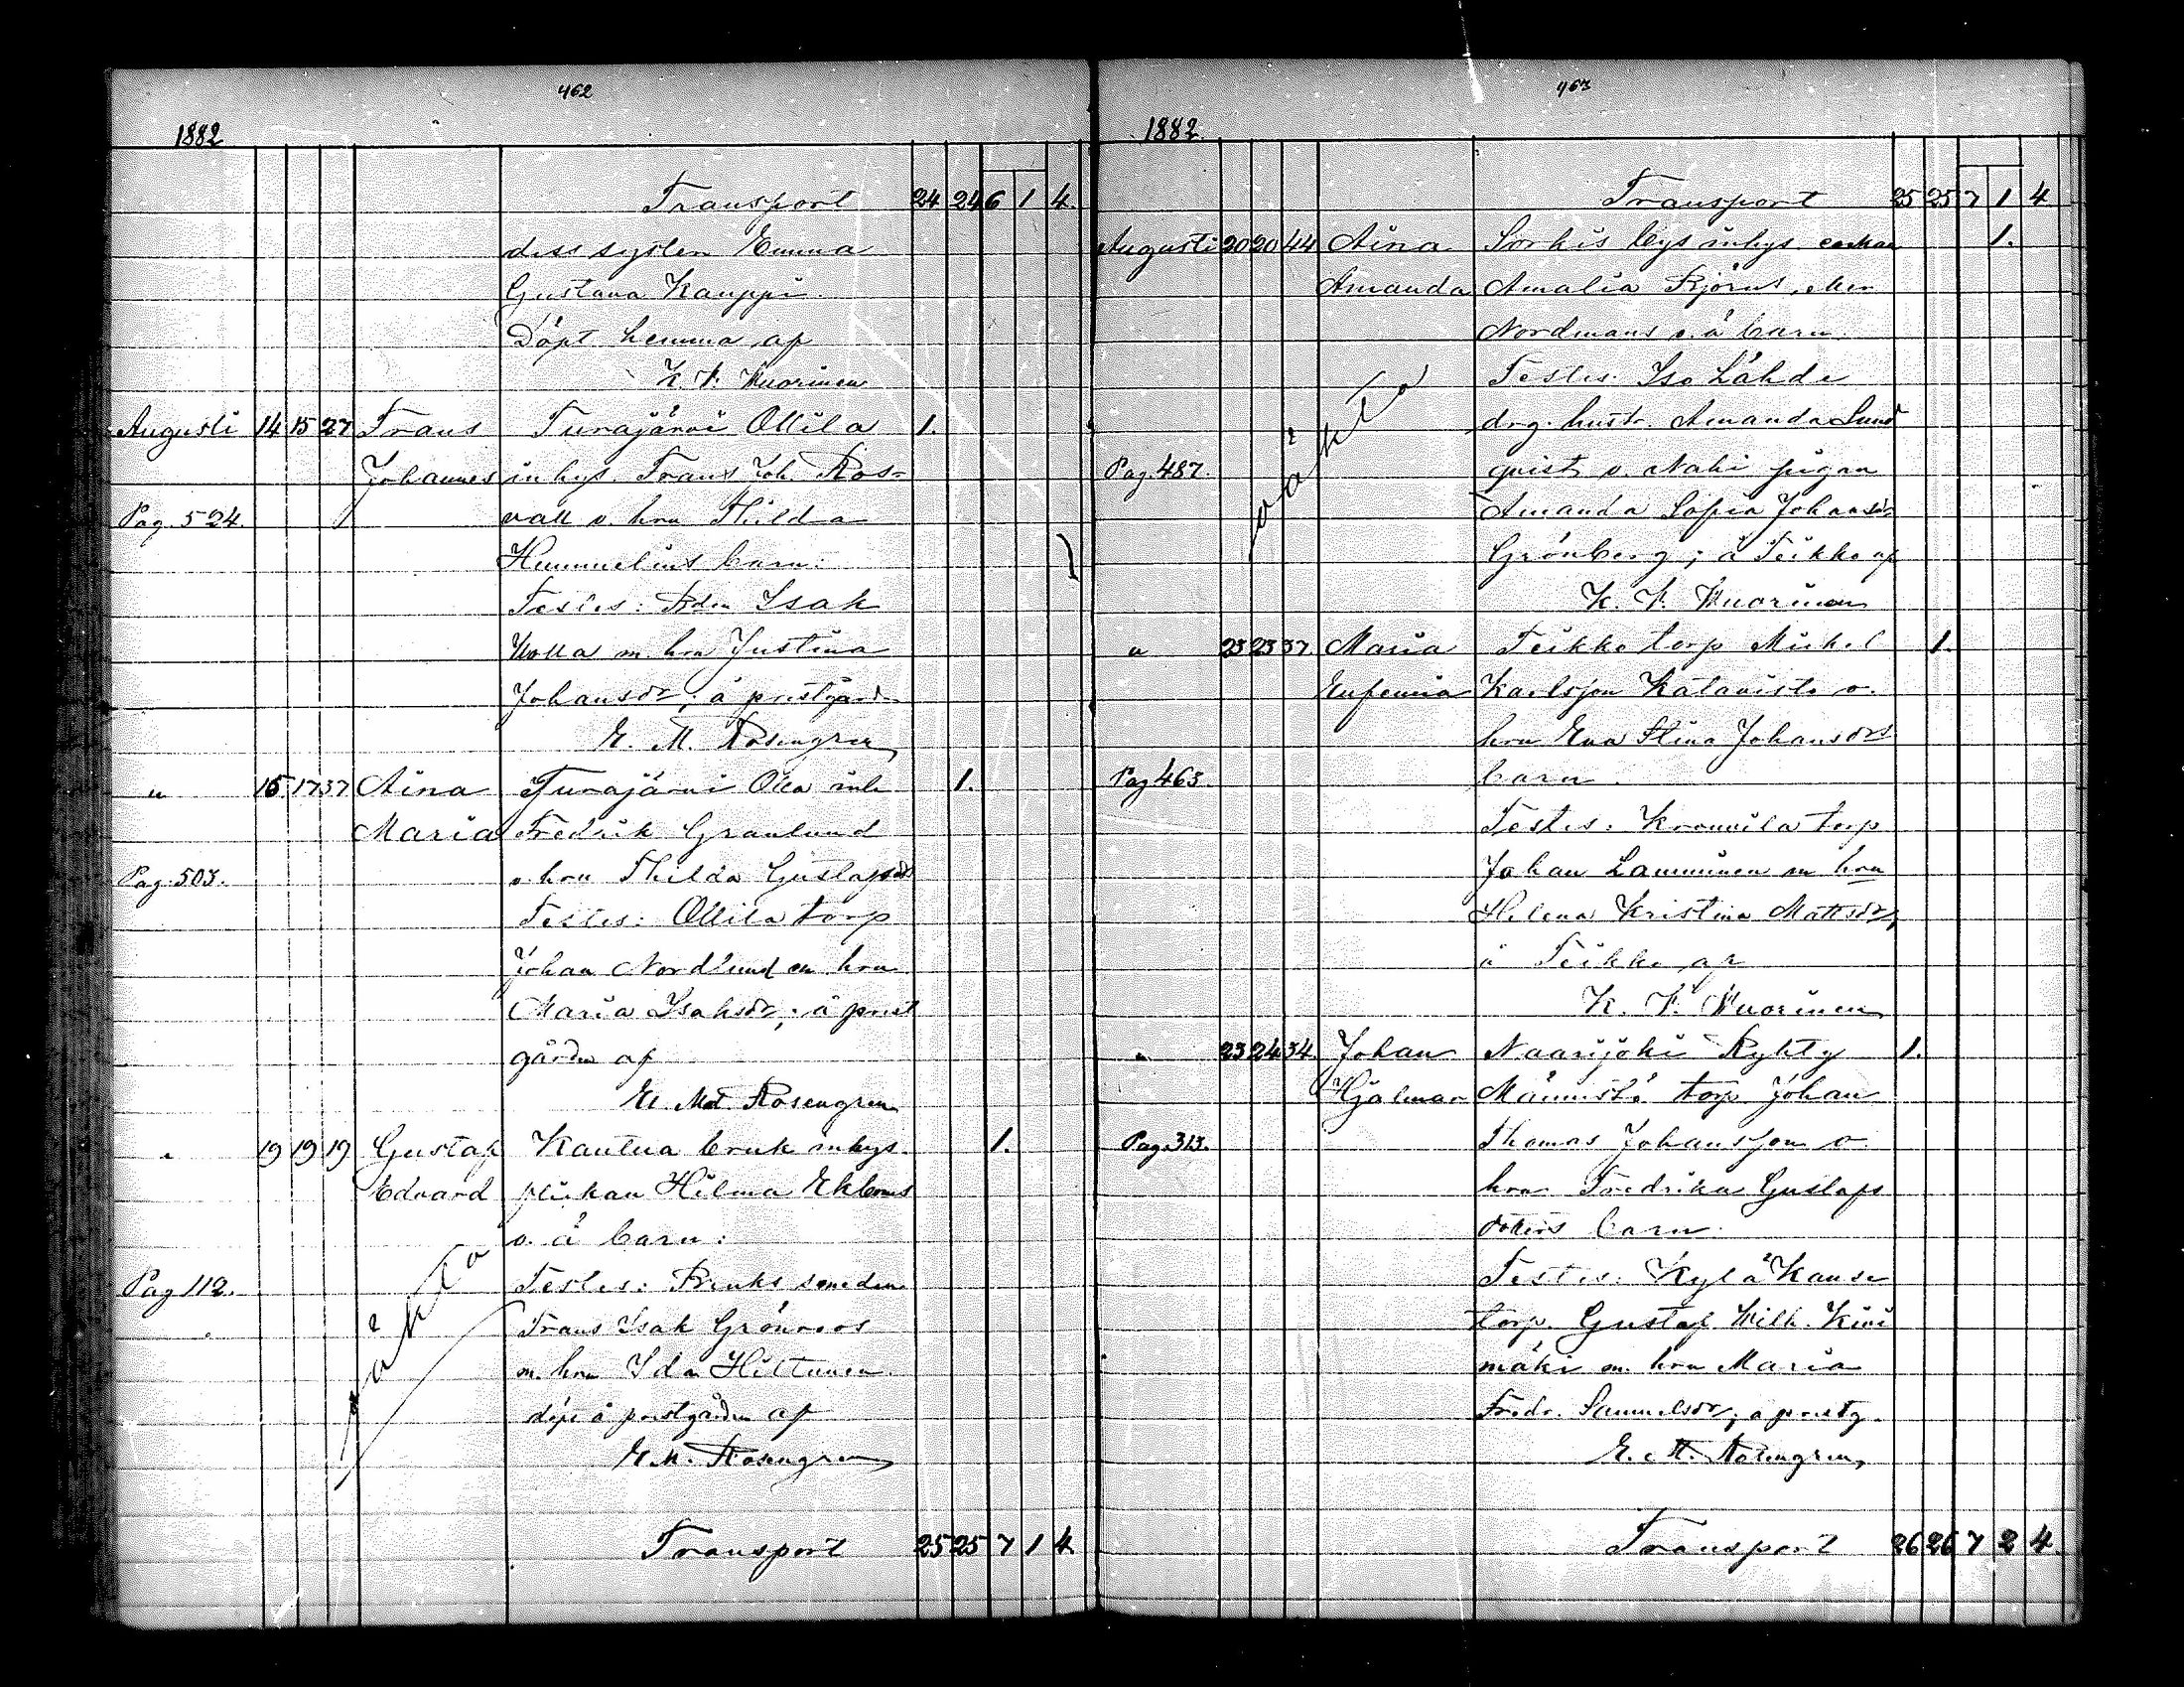 462
1882
Transport 24 24 6 1 4.
dess syster Emma
Gustava Kauppi.
Döpt hemma af
K. F. Kuorinen
Augusti 14 15 27 Frans Turajärvi Ollila 1.
Johannes inhys. Frans Joh. Ros-
Pag. 524. vall o. hru Thilda
Hummelins barn:
Testes: Isak
m. hru Justina
Johansdr; å prestgård
E. M. Rosengren
" 15. 17 37 Aina Turajärvi Olla inh 1.
Maria Fredrik Granlund
Pag. 503. o. hru Thilda Gustafsdr
Testes: Ollila torp
Johan Nordlund m hru
Maria Isaksdr; å prest
gården af
E. Md. Rosengren
" 19 19 19 Gustaf Kautua bruk inhys. 1.
Edvard flickan Hilma Ekboms
o. ä barn:
Pag 112. Testes: Bruks smeden
oäkta Frans Isak Grönroos
m. hru Ida Hiltunen.
döpt å prestgården af
E. M. Rosengren
Transport 25 25 7 1 4.
463
1882.
Transport 25 25 7 1 4
Augusti 20 20 44 Aina Sorkis bys inhys enkan 1.
Amanda Amalia Björns, eller
Nordmans o. ä barn.
Testes: Iso Lähde
oäkta drg. hustr. Amanda Lund
Pag. 487. qvist o. Nahi pigan
Amanda Sofia Johansdr
Grönberg; å Teikko af
K. F. Kuorinen
" 23 23 37 Maria Teikko torp Mickel 1.
Eufemia Karlsson Katavisto o.
hru Eva Stina Johansdrs
Pag 463. barn.
Testes: torp
Johan Lamminen m hru
Helena Kristina Mattsdr,
å Teikko af
K. F. Kuorinen
" 23 24 34. Johan Naarijoki Ryhty 1.
Hjalmar Männistö torp Johan
Pag. 313. Thomas Johansson o.
hru Fredrika Gustafs
dotters barn.
Testes: Kylä Kause
torp. Gustaf Wilh. Kivi
mäki m. hru Maria
Fredr. Samuelsdr; å prestg.
E. M. Rosengren,
Transport 26 26 7 2 4.